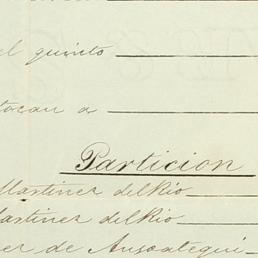 el quinto
tocan a
Particion
Martinez del Rio
Martinez del Rio
er de Ansoategui